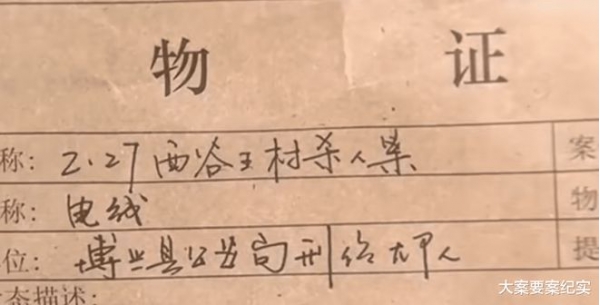 物 证
称: 2.27西谷王村杀人案 案
称: 电线 物
位: 博兴县公安局刑 人 提
态描述:
大案要案纪实